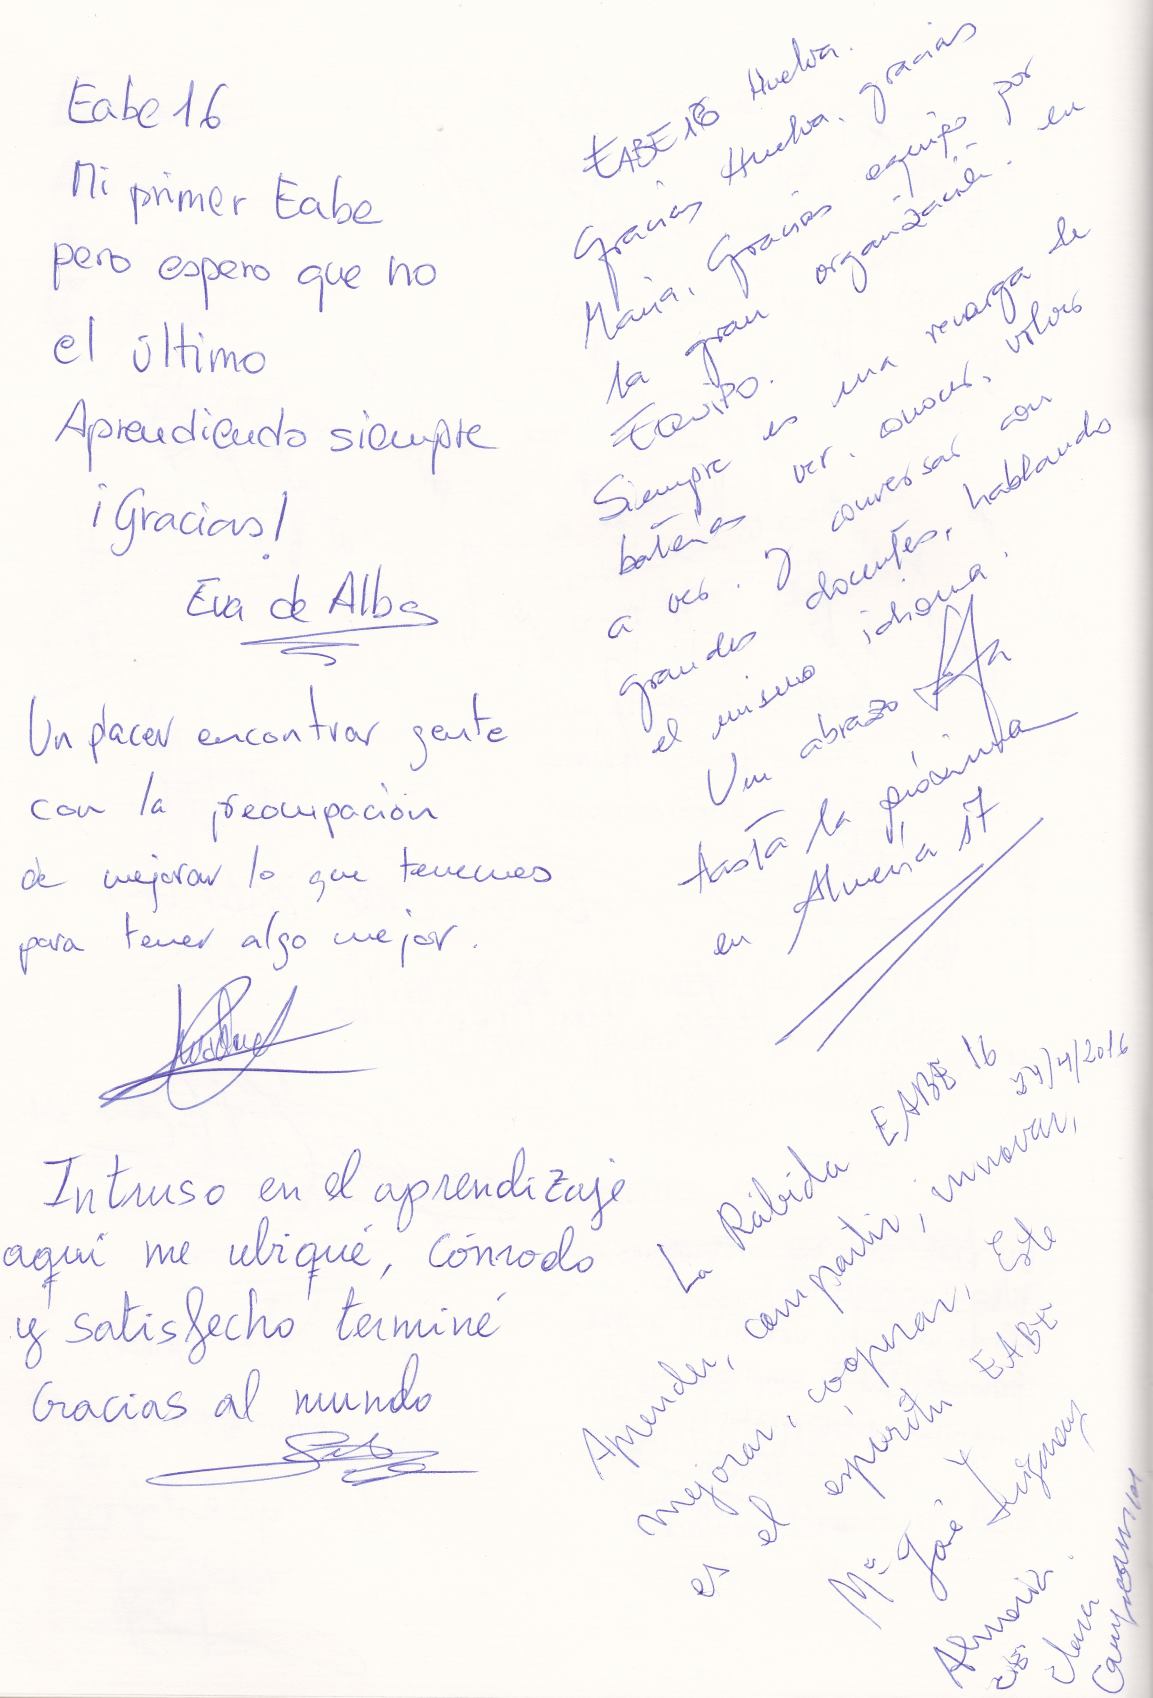 Eabe 16
Mi primer Eabe
pero espero que no
el último
Aprendiendo siempre
¡Gracias!
Eva de Alba
Un placer encontrar gente
con la preocupación
de mejorar lo que tenemos
para tener algo mejor.
Intruso en el aprendizaje
aquí me ubiqué, cómodo
y satisfecho terminé
Gracias al mundo
EABE16 Huelva.
Gracias Huelva. gracias
María. Gracias equipo por
la gran organización. en
EQUIPO.
Siempre es una recarga de
baterías ver, conocer, volver
a ver. y conversar con
grandes docentes, hablando
el mismo idioma.
Un abrazo
Hasta la próxima
en Almería 17
La Rábida EABE 16 24/4/2016
Aprender, compartir, innovar,
mejorar, cooperar, Este
es el espíritu EABE
Mª José
Almería